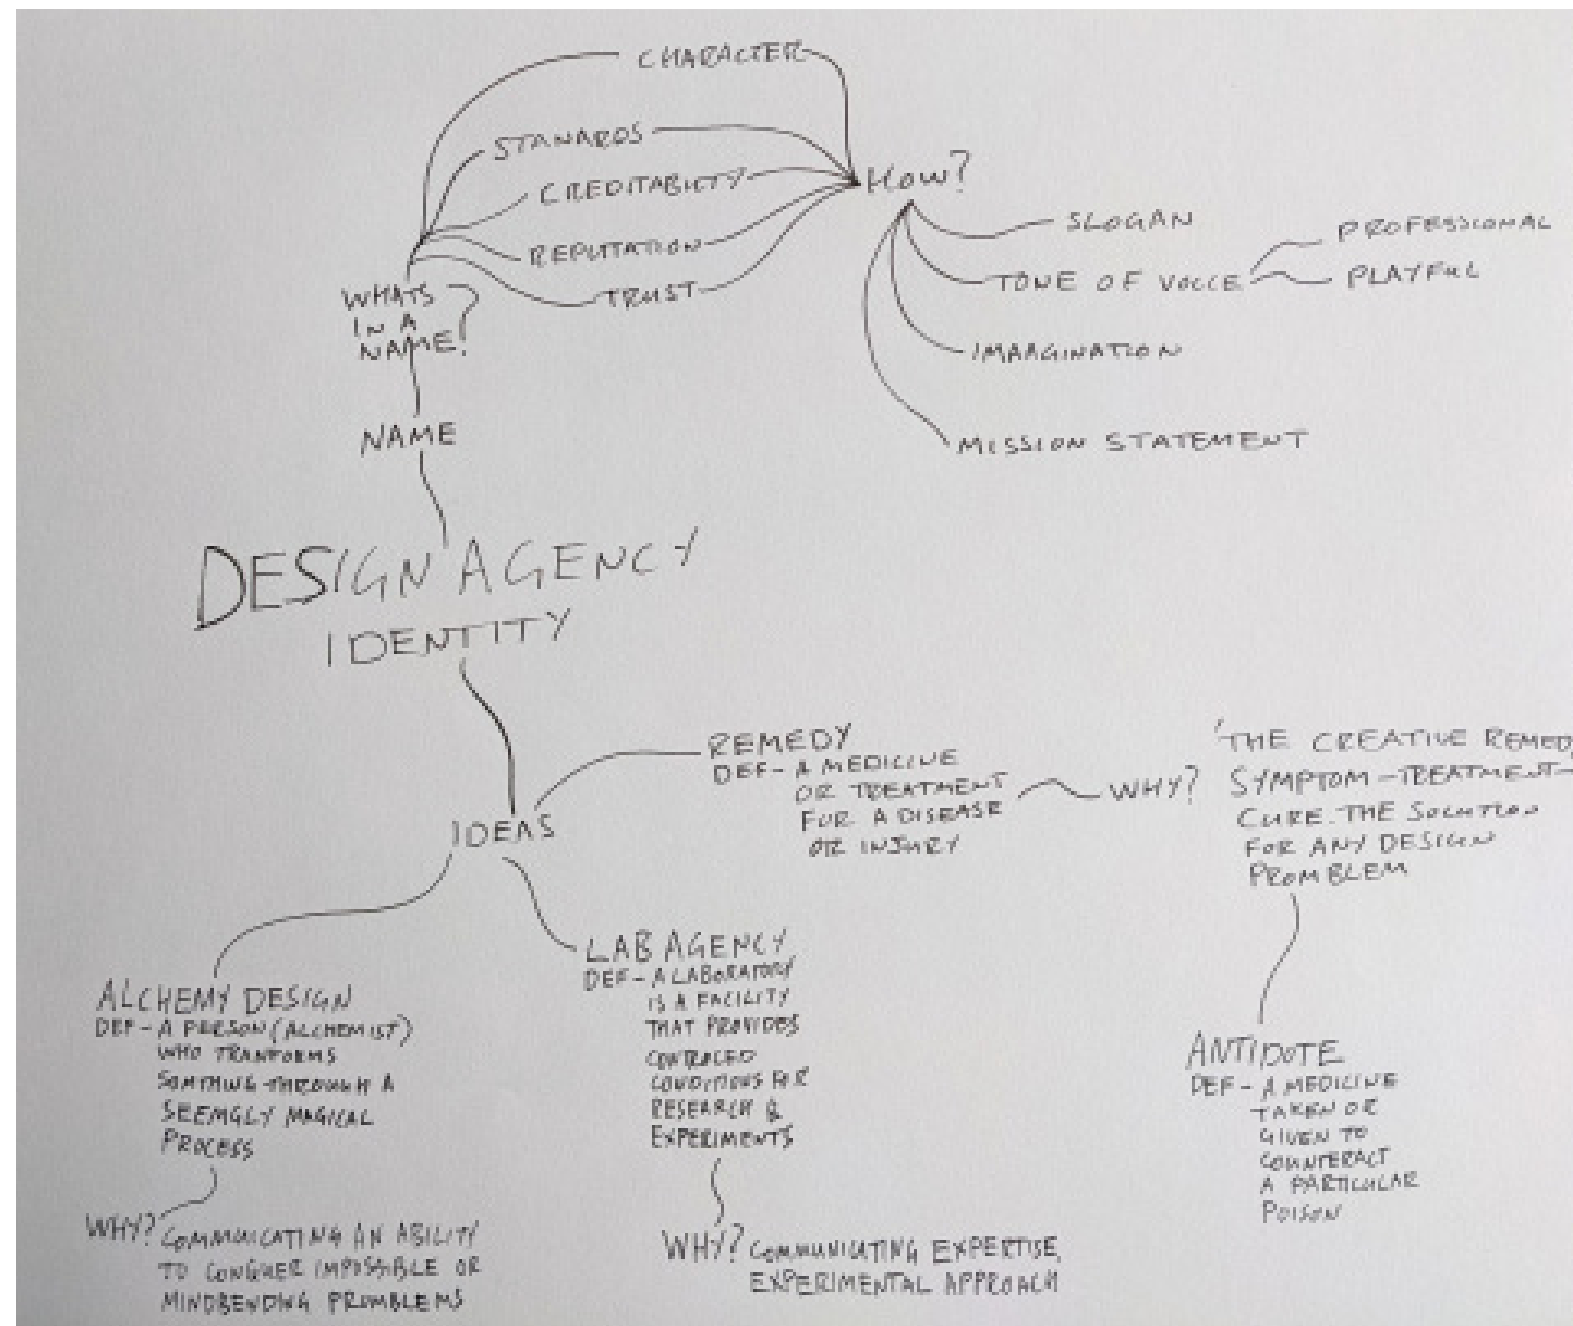 CHARACTER
STANARDS
CREDITABILTY
HOW?
REPUTATION
TRUST
SLOGAN
TONE OF VOICE
PROFESSIONAL
PLAYFUL
IMAAGINATION
MISSION STATEMENT
WHATS
IN A
NAME?
NAME
DESIGN AGENCY
IDENTITY
IDEAS
REMEDY
DEF - A MEDICINE
OR TREATMENT
FOR A DISEASE
OR INJURY
WHY?
'THE CREATIVE REMEDY
SYMPTOM - TREATMENT -
CURE. THE SOLUTION
FOR ANY DESIGN
PROMBLEM
ANTIDOTE
DEF - A MEDICINE
TAKEN OR
GIVEN TO
COUNTERACT
A PARTICULAR
POISON
LAB AGENCY
DEF - A LABORATORY
IS A FACILITY
THAT PROVIDES
CONDITIONS FOR
RESEARCH &
EXPERIMENTS
WHY? COMMUNICATING EXPERTISE,
EXPERIMENTAL APPROACH
ALCHEMY DESIGN
DEF - A PERSON (ALCHEMIST)
WHO TRANFORMS
SOMTHING THROUGH A
SEEMGLY MAGICAL
PROCESS
WHY? COMMUNICATING AN ABILITY
TO CONQUER IMPOSSIBLE OR
MINDBENDING PROMBLEMS